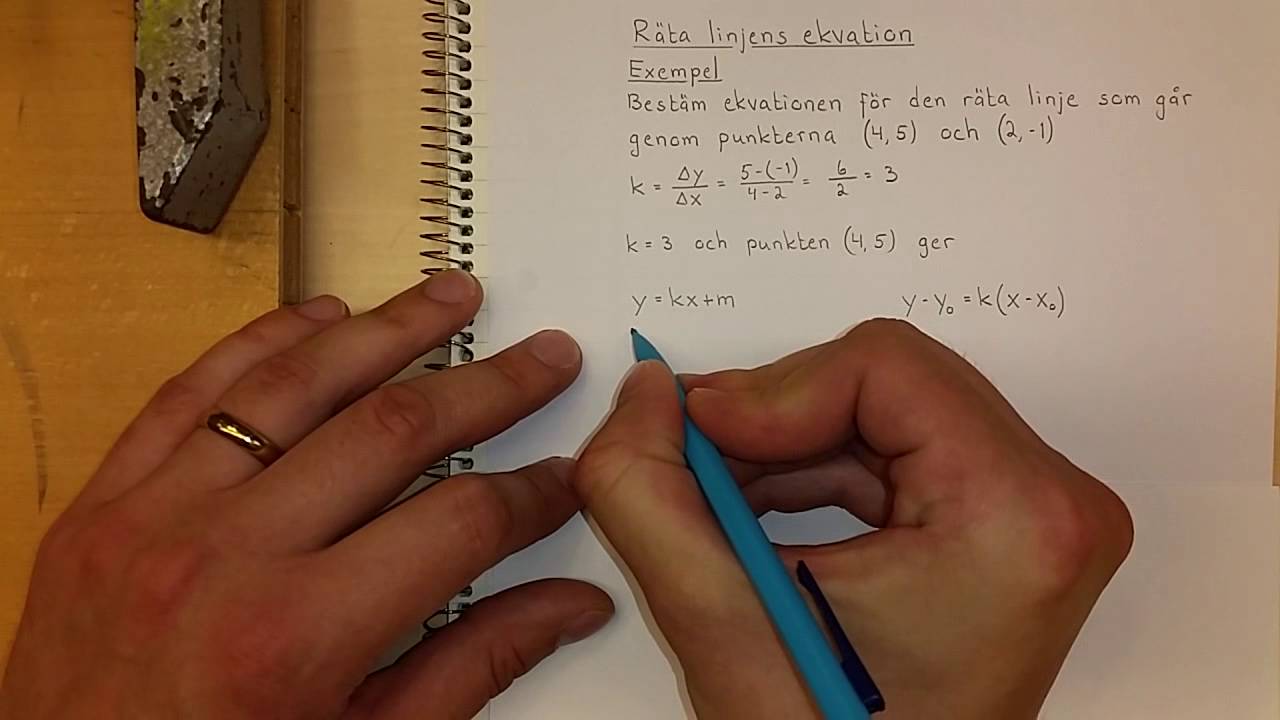 Räta linjens ekvation
Exempel
Bestäm ekvationen för den räta linje som går
genom punkterna (4,5) och (2,-1)
k = Δy/Δx = 5-(-1)/4-2 = 6/2 = 3
k = 3 och punkten (4,5) ger
y = kx+m y-y₀ = k(x-x₀)